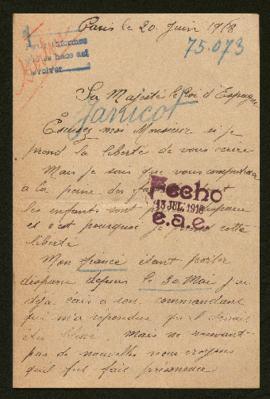 Paris le 20 Juin 1918
75.073
Sa Majesté le Roi d'Espagne
Jarricot
Excusez moi Monsieur si je
prend la liberté de vous écrire
Mais je sais que vous
à la peine des
les enfants sont
et c'est pourquoi je cette
liberté
Fecho
13 JUL. 1918
e.a.e.
Mon france étant porter
disparu depuis le 30 Mai j'ai
déjà écris à son commandant
qui m'a répondu qu'il
être blessé. Mais ne recevant
pas de nouvelles nous croyons
qu'il est fait prisonnier